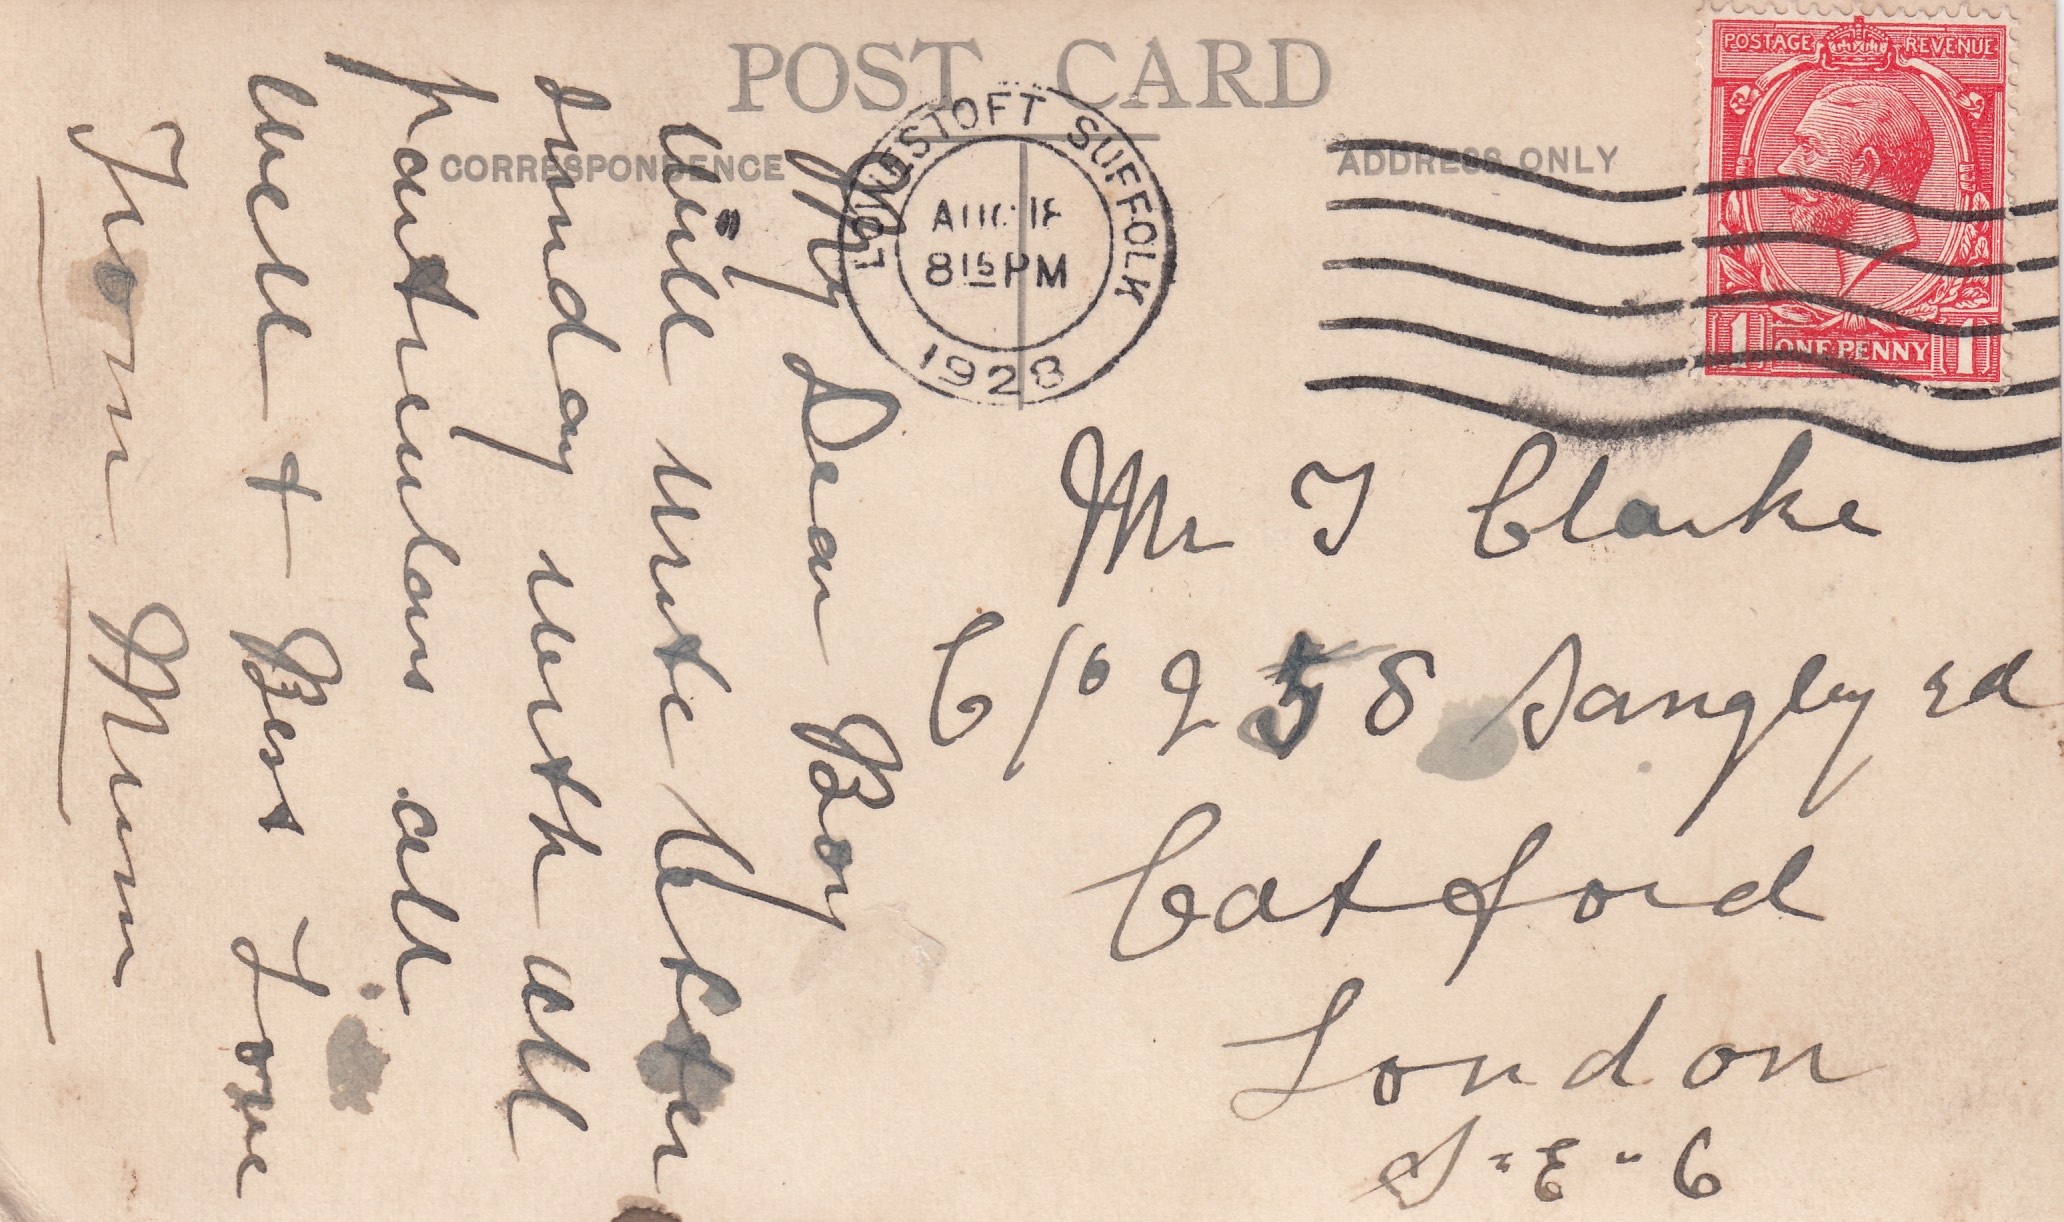 POST CARD
CORRESPONDENCE
ADDRESS ONLY
POSTAGE REVENUE
1 ONE PENNY 1
LOWESTOFT SUFFOLK
AUG 18
815 PM
1928
My Dear Boy
Will write letter
sunday with all
particulars all
Well + Best Love
From Mum
Mr T Clarke
C/o 258 Sangley rd
Catford
London
S.E.6